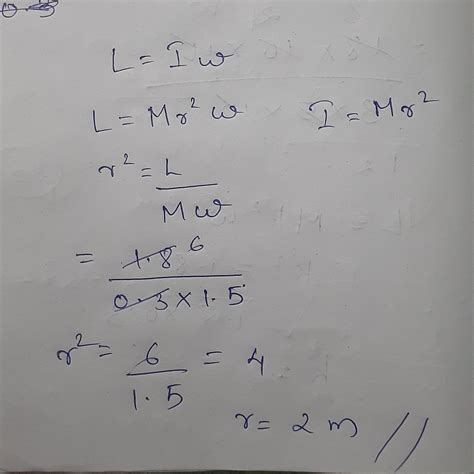 L = Iω
L = Mr²ω    I = Mr²
r² = L / Mω
= 1.8 6 / 0.3 × 1.5
r² = 6 / 1.5 = 4
r = 2 m //